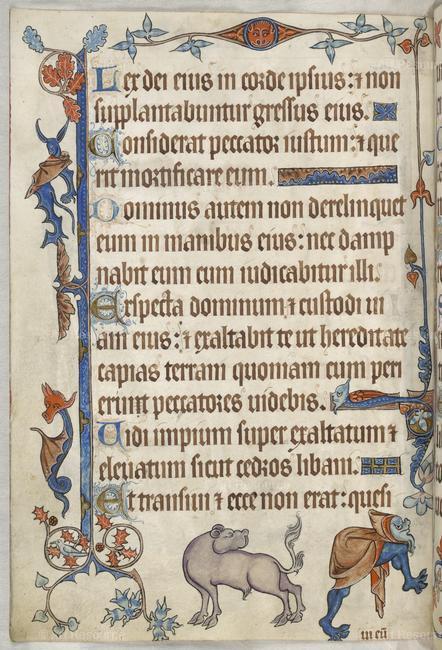 Lex dei eius in corde ipsius: ⁊ non
supplantabuntur gressus eius.
Considerat peccator iustum: ⁊ que
rit mortificare eum.
Dominus autem non derelinquet
eum in manibus eius: nec damp
nabit eum cum iudicabitur illi.
Exspecta dominum ⁊ custodi ui
am eius: ⁊ exaltabit te ut hereditate
capias terram quoniam cum peri
erint peccatores uidebis.
Vidi impium super exaltatum ⁊
eleuatum sicut cedros libani.
Et transiui ⁊ ecce non erat: quesi